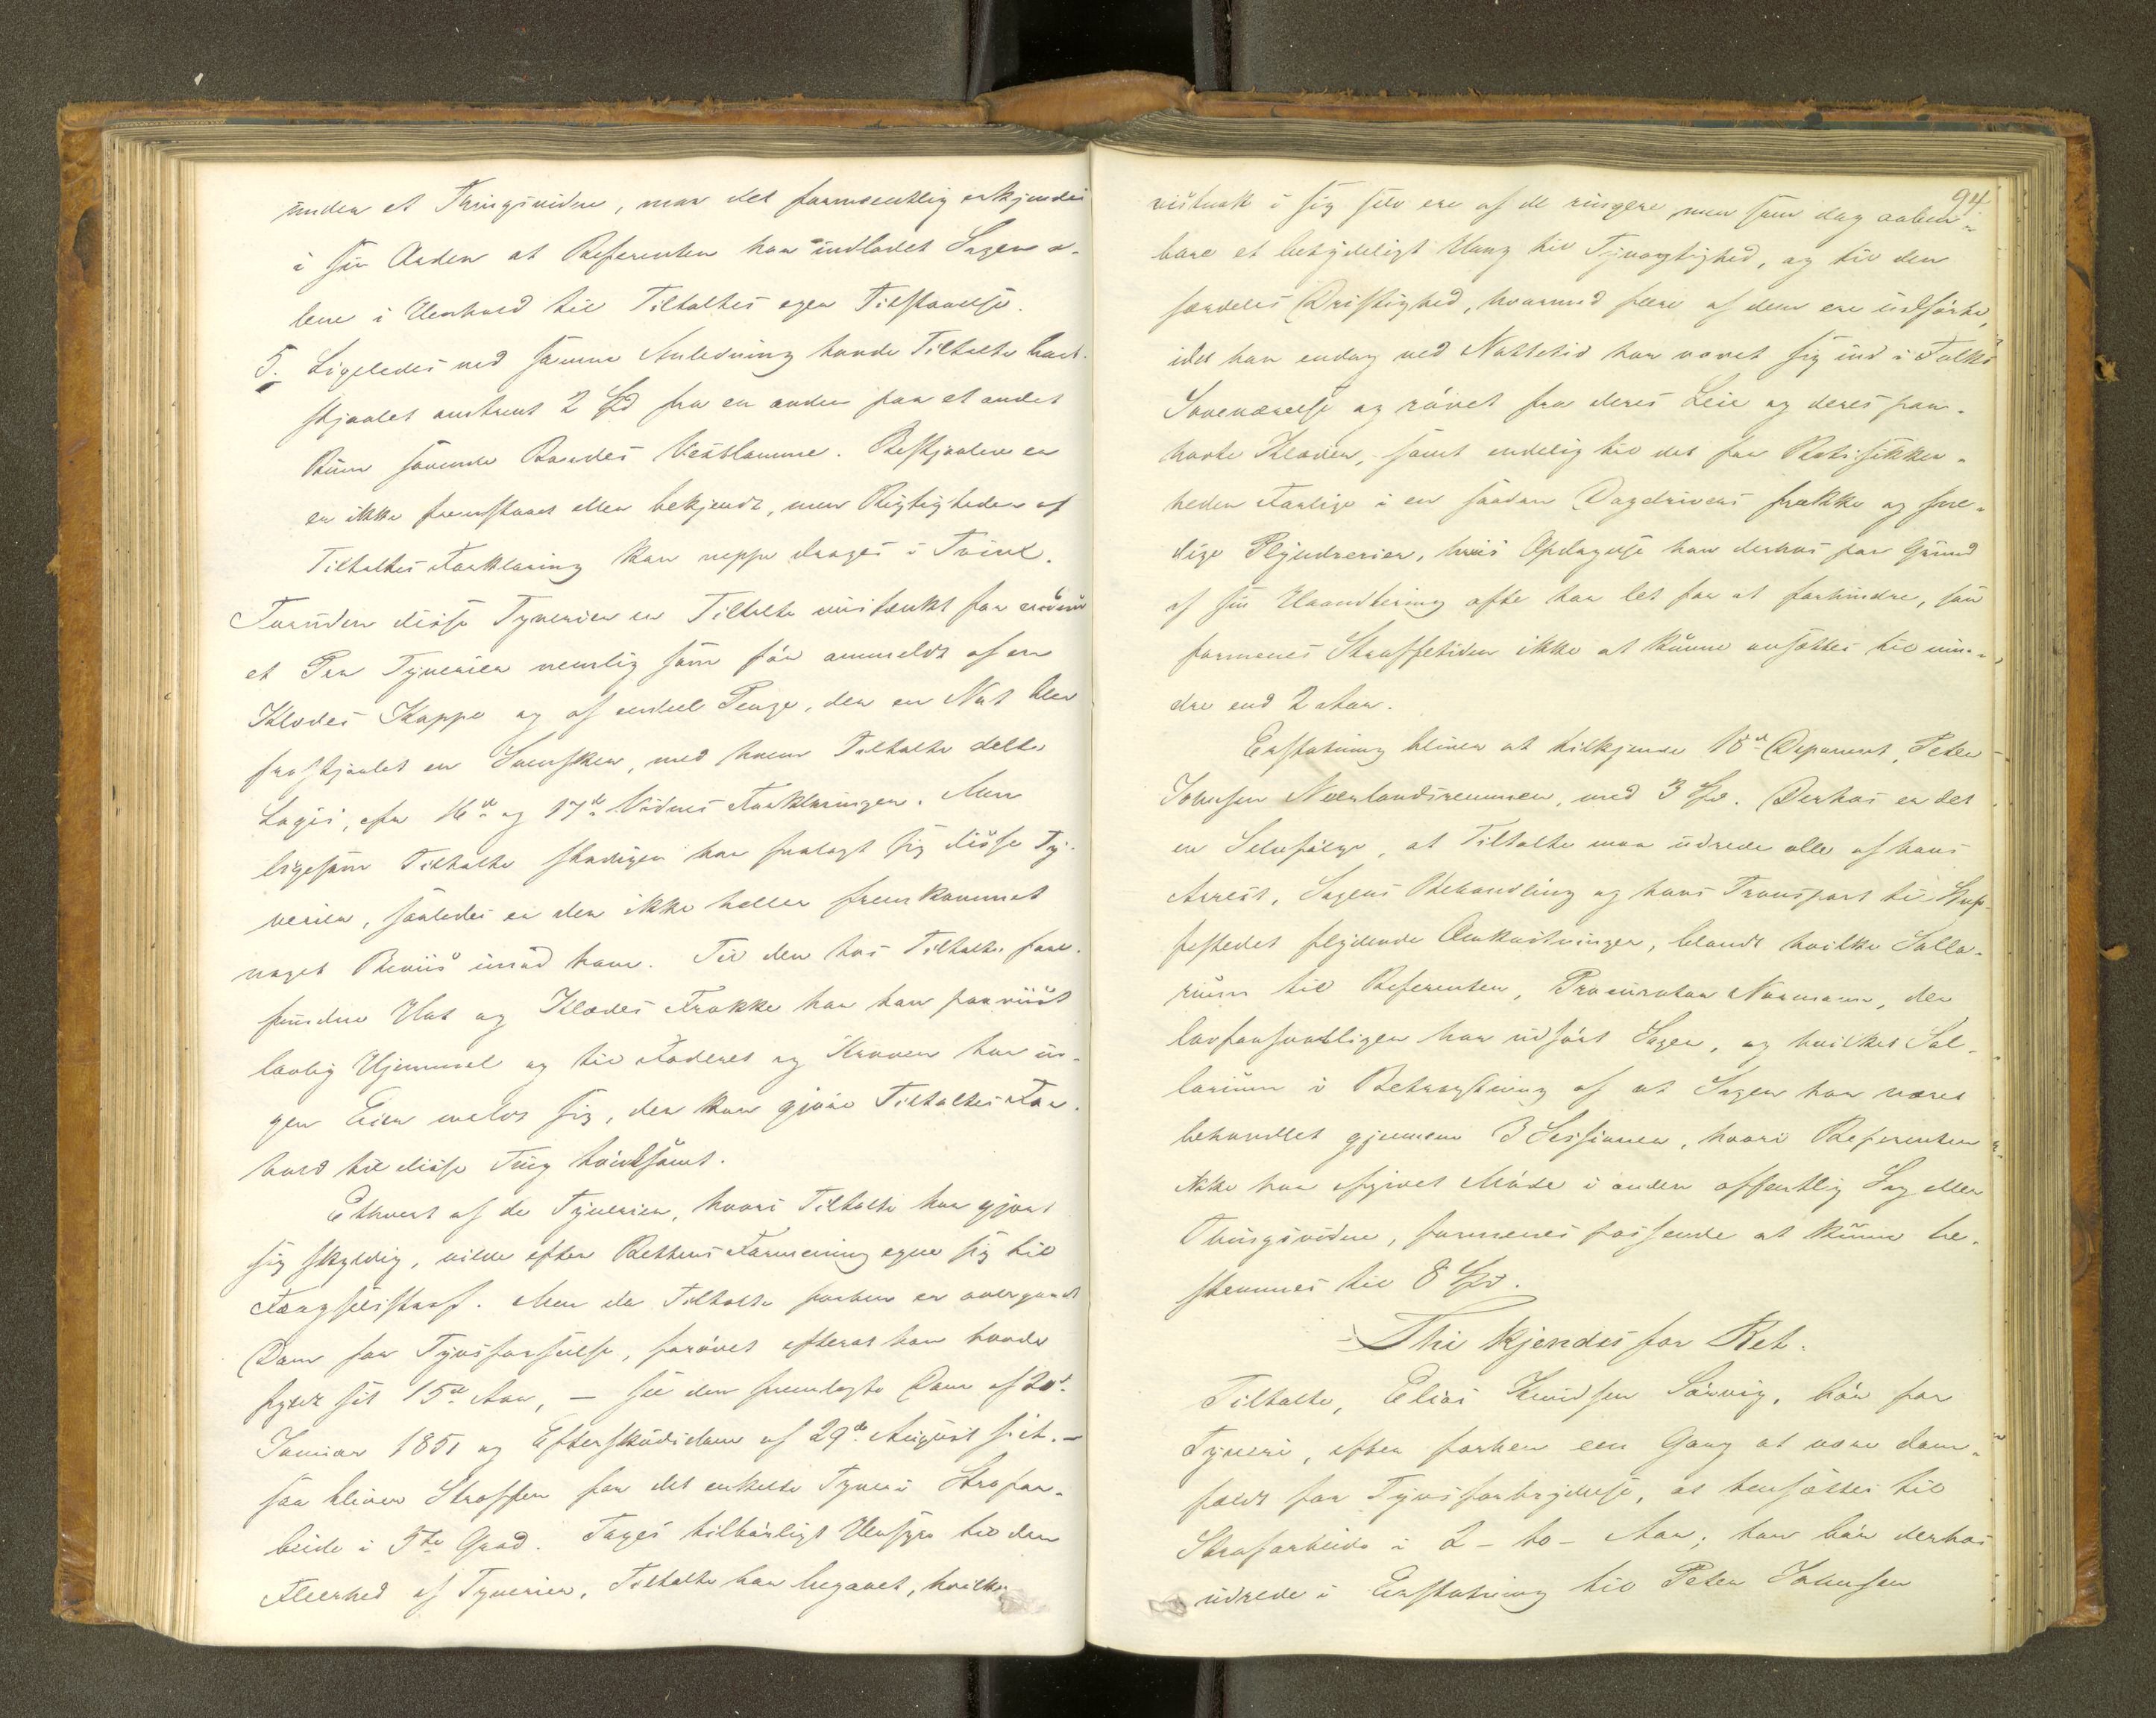 under et Thingsvidne, maa det formeentlig erkjendes
i sin Orden at Referenten har indladet Sagen a-
lene i Henhold til Tiltaltes egen Tilstaaelse.
5. Ligeledes ved samme Anledning havde Tiltalte bort-
stjaalet omtrent 2 Spd fra en anden paa et andet
Rum sovende Bondes Vestlomme. Bestjaalne er
er ikke fremstaaet eller bekjendt, men Rigtigheden af
Tiltaltes Forklaring kan neppe drages i Tvivl.
Foruden disse Tyverier er Tiltalte mistænkt for endnu
et Par Tyverier nemlig som før anmeldt af en
Klædes Kappe og af endeel Penge, der en Nat blev
frastjaalet en Svensker, med hvem Tiltalte deelte
Logis, cfr 16de og 17de Vidnes Forklaringer. Men
ligesom Tiltalte stadigen har fralagt sig disse Ty-
verier, saaledes er der ikke heller fremkommet
noget Beviis imod ham. Til den hos Tiltalte fore-
fundne Hat og Klædes Frakke har han paaviist
lovlig Hjemmel og til Foderet og Kraven har in-
gen Eier meldt sig, der kan gjøre Tiltaltes For-
hold til disse Ting tvivlsomt.
Ethvert af de Tyverier, hvori Tiltalte har gjort
sig skyldig, vilde efter Rettens Formening egne sig til
Fængselsstraf. Men da Tiltalte forhen er overgaaet
Dom for Tyvsforseelse, forøvet efterat han havde
fyldt sit 15de Aar, – see den fremlagte Dom af 20de
Januar 1851 og Efterskudsdom af 29de August s. A. –
saa bliver Straffen for det enkelte Tyveri Strafar-
beide i 5te Grad. Tages tilbørligt Hensyn til den
Fleerhed af Tyverier, Tiltalte har begaaet, hvilke
94
vistnok i sig selv ere af de ringere men som dog aaben-
bare et betydeligt Hang til Tyvagtighed, og til den
særdeles Dristighed, hvormed flere af dem ere udførte,
idet han endog ved Nattetid har vovet sig ind i Folks
Soveværelse og røvet fra deres Leie og deres paa-
havte Klæder, samt endelig til det for Retssikker-
heden Farlige i en saadan Dagdrivers frække og sne-
dige Plyndrerier, hvis Opdagelse han derhos paa Grund
af sin Haandtering ofte har let for at forhindre, saa
formenes Straffetiden ikke at kunne ansættes til min-
dre end 2 Aar.
Erstatning bliver at tilkjende 18de Deponent, Peter
Johnsen Neerlandsremmen, med 3 Spd. Derhos er det
en Selvfølge, at Tiltalte maa udrede alle af hans
Arrest, Sagens Behandling og hans Transport til Straf-
festedet flydende Omkostninger, blandt hvilke Salla-
rium til Referenten, Procurator Normann, der
lovforsvarligen har udført Sagen, og hvilket Sal-
larium i Betragtning af at Sagen har været
behandlet gjennem 3 Sessioner, hvori Referenten
ikke har afgivet Møde i anden offentlig Sag eller
Thingsvidne, formenes passende at kunne be-
stemmes til 8 Spd.
Thi kjendes for Ret.
Tiltalte, Elias Knudsen Sørvig, bør for
Tyveri, efter forhen een Gang at være dom-
fældt for Tyvsforbrydelse, at hensættes til
Strafarbeide i 2 – to – Aar; han bør derhos
udrede i Erstatning til Peter Johnsen